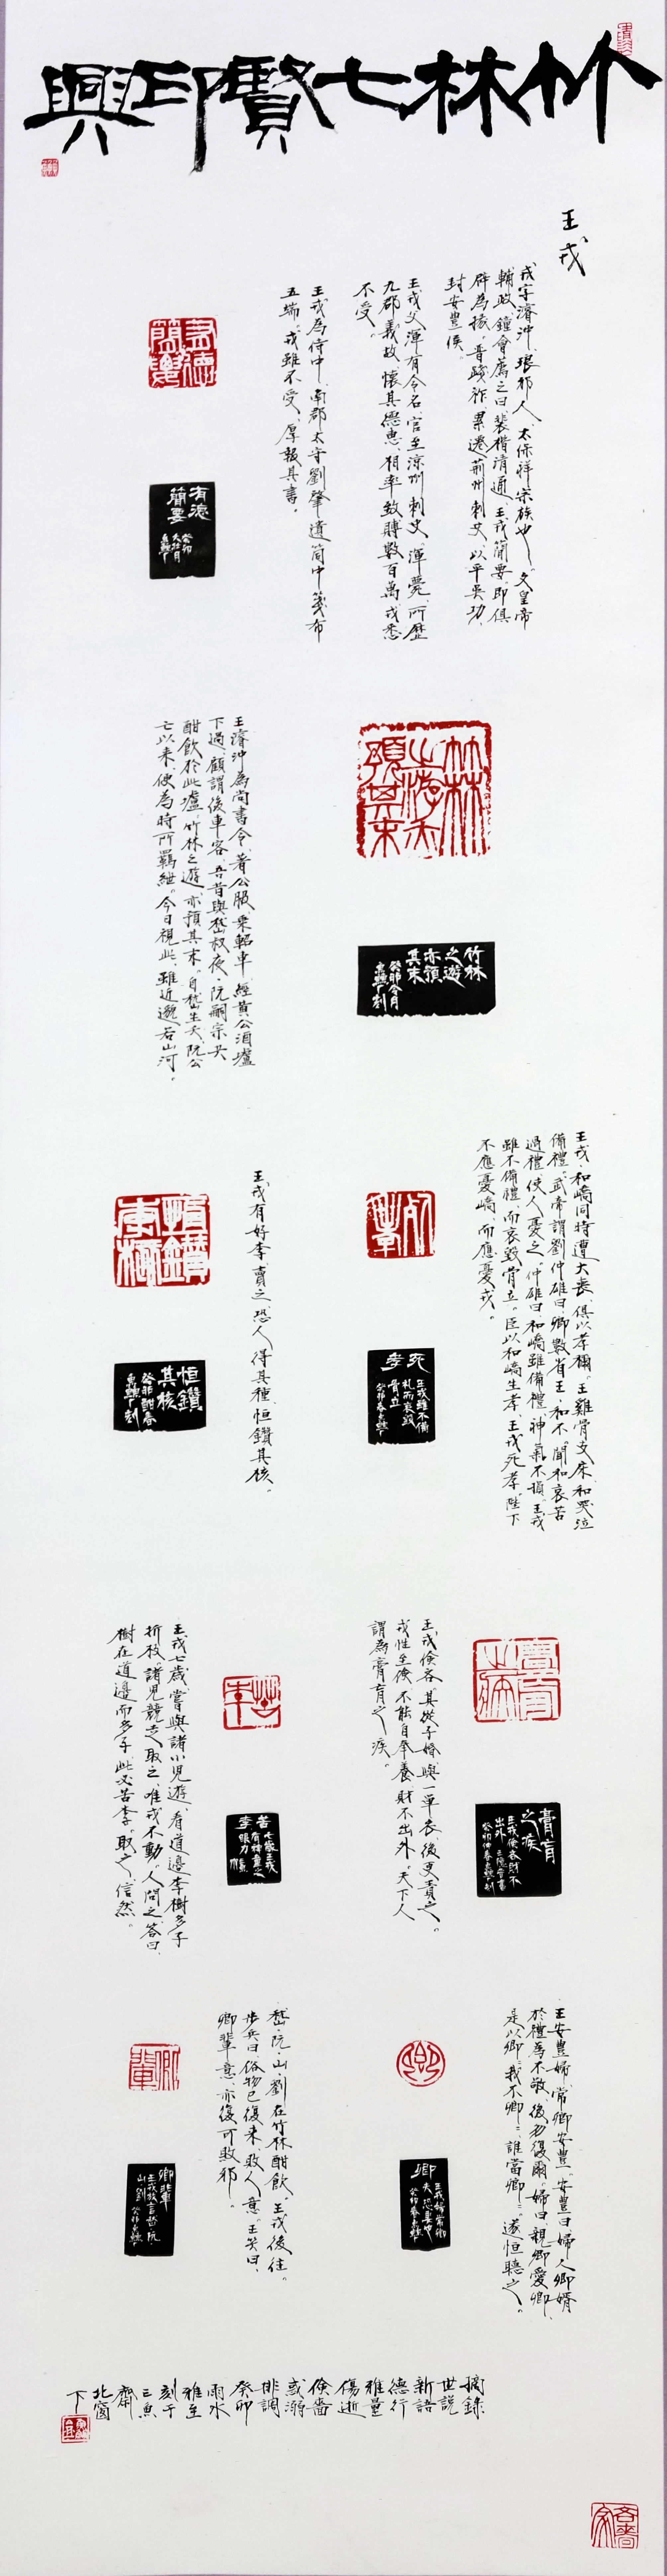 竹林七賢印興
王戎
戎字濬沖、琅邪人、太保祥宗族也。文皇帝
輔政、鐘會薦之曰、裴楷清通、王戎簡要、即俱
辟為掾。晉踐祚、累遷荊州刺史、以平吳功、
封安豊侯。
王戎父渾有令名、官至涼州刺史。渾薨、所歷
九郡義故、懷其德惠、相率致賻數百萬、戎悉
不受。
王戎為侍中、南郡太守劉肇遺筒中箋布
五端、戎雖不受、厚報其書。
有德
簡要
癸卯
竹林
之遊
亦預
其末
癸卯
王濬沖為尚書令、著公服、乘軺車、經黃公酒壚
下過、顧謂後車客、吾昔與嵇叔夜、阮嗣宗共
酣飲於此壚、竹林之遊、亦預其末。自嵇生夭、阮公
亡以來、便為時所羈紲。今日視此、雖近邈若山河。
王戎、和嶠同時遭大喪、俱以孝稱。王雞骨支床、和哭泣
備禮。武帝謂劉仲雄曰、卿數省王、和不、聞和哀苦
過禮、使人憂之。仲雄曰、和嶠雖備禮、神氣不損、王戎
雖不備禮、而哀毀骨立。臣以和嶠生孝、王戎死孝。陛下
不應憂嶠、而應憂戎。
死
孝
王戎雖不備
禮而哀毀
骨立
王戎有好李、賣之、恐人得其種、恒鑽其核。
恒鑽
其核
癸卯
膏肓
之疾
王戎儉吝、其從子婚、與一單衣、後更責之。
戎性至儉、不能自奉養、財不出外、天下人
謂為膏肓之疾。
苦
李
王戎七歲、嘗與諸小兒遊、看道邊李樹多子
折枝。諸兒競走取之、唯戎不動。人問之、答曰、
樹在道邊而多子、此必苦李。取之、信然。
王安豊婦、常卿安豊。安豊曰、婦人卿婿、
於禮為不敬、後勿復爾。婦曰、親卿愛卿、
是以卿卿、我不卿卿、誰當卿卿。遂恒聽之。
卿
嵇、阮、山、劉在竹林酣飲、王戎後往。
步兵曰、俗物已復來、敗人意。王笑曰、
卿輩意、亦復可敗邪。
卿輩
摘錄
世說
新語
德行
雅量
傷逝
儉嗇
惑溺
排調
癸卯
雨水
雅至
刻于
三魚
齋
北窗
下